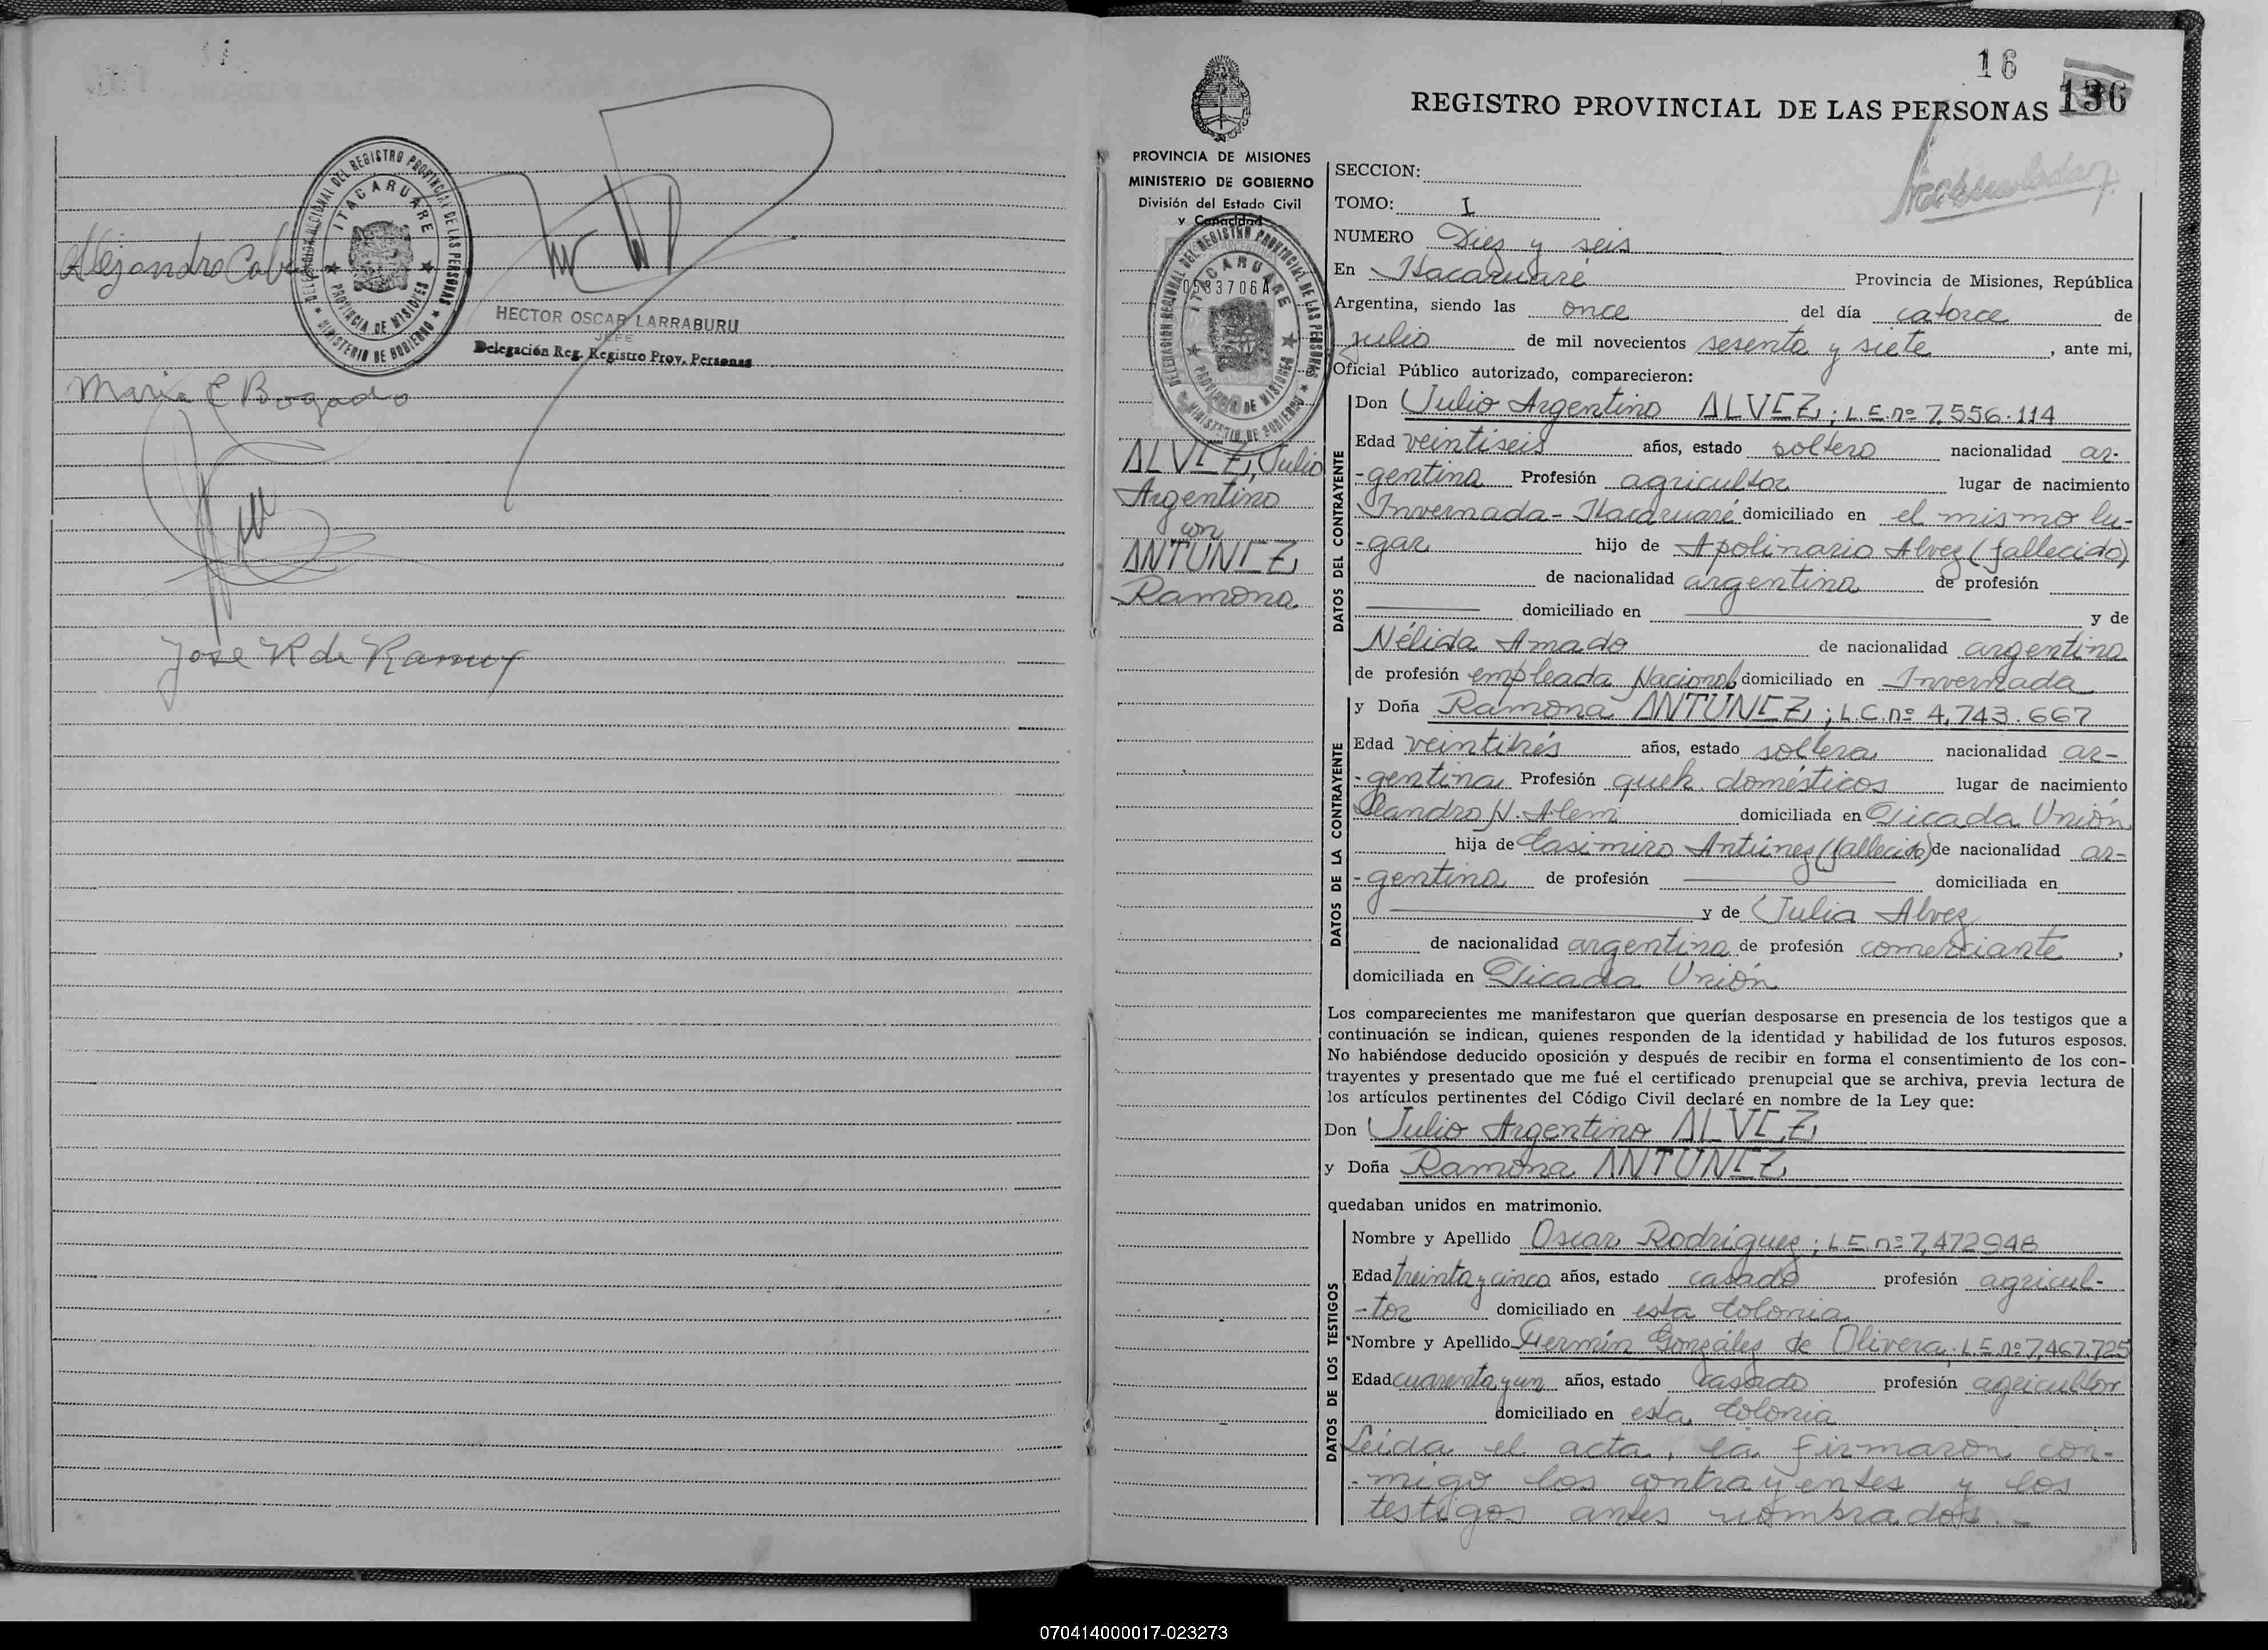 Alejandro Cab
DELEGACION REGIONAL DEL REGISTRO PROVINCIAL DE LAS PERSONAS
ITACARUARE
PROVINCIA DE MISIONES
MINISTERIO DE GOBIERNO
HECTOR OSCAR LARRABURU
JEFE
Delegación Reg. Registro Prov. Personas
Maria E Bogado
José R de Ramux
16
REGISTRO PROVINCIAL DE LAS PERSONAS 136
PROVINCIA DE MISIONES
MINISTERIO DE GOBIERNO
División del Estado Civil
y Capacidad
DELEGACION REGIONAL DEL REGISTRO PROVINCIAL DE LAS PERSONAS
ITACARUARE
0533706A
PROVINCIA DE MISIONES
MINISTERIO DE GOBIERNO
ALVEZ, Julio
Argentino
con
ANTUNEZ
Ramona
SECCION:
TOMO: I
NUMERO Diez y seis
En Itacaruaré Provincia de Misiones, República
Argentina, siendo las once del día catorce de
julio de mil novecientos sesenta y siete, ante mi,
Oficial Público autorizado, comparecieron:
DATOS DEL CONTRAYENTE
Don Julio Argentino ALVEZ; L.E.nº 7.556.114
Edad veintiseis años, estado soltero nacionalidad ar-
-gentina Profesión agricultor lugar de nacimiento
Invernada-Itacaruaré domiciliado en el mismo lu-
-gar hijo de Apolinario Alvez (fallecido)
de nacionalidad argentina de profesión
domiciliado en y de
Nélida Amado de nacionalidad argentina
de profesión empleada Nacional domiciliado en Invernada
DATOS DE LA CONTRAYENTE
y Doña Ramona ANTUNEZ; L.C.nº 4,743.667
Edad veintitrés años, estado soltera nacionalidad ar-
-gentina Profesión queh. domésticos lugar de nacimiento
Leandro N. Alem domiciliada en Picada Unión
hija de Casimiro Antúnez (fallecido) de nacionalidad ar-
-gentina de profesión domiciliada en
y de Julia Alvez
de nacionalidad argentina de profesión comerciante,
domiciliada en Picada Unión
Los comparecientes me manifestaron que querían desposarse en presencia de los testigos que a
continuación se indican, quienes responden de la identidad y habilidad de los futuros esposos.
No habiéndose deducido oposición y después de recibir en forma el consentimiento de los con-
trayentes y presentado que me fué el certificado prenupcial que se archiva, previa lectura de
los artículos pertinentes del Código Civil declaré en nombre de la Ley que:
Don Julio Argentino ALVEZ
y Doña Ramona ANTUNEZ
quedaban unidos en matrimonio.
DATOS DE LOS TESTIGOS
Nombre y Apellido Oscar Rodríguez; L.E.nº 7,472948
Edad treinta y cinco años, estado casado profesión agricul-
-tor domiciliado en esta Colonia
Nombre y Apellido Fermín Gonzáles de Olivera; L.E.nº 7,467.725
Edad cuarenta y un años, estado casado profesión agricultor
domiciliado en esta Colonia
Leida el acta, la firmaron con-
-migo los contrayentes y los
testigos antes nombrados.-
070414000017-023273